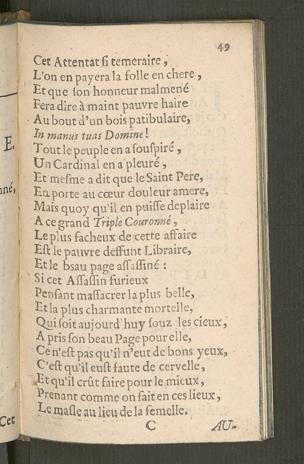 49
Cet Attentat si temeraire,
L'on en payera la folle en chere,
Et que son honneur malmené
Fera dire à maint pauvre haire
Au bout d'un bois patibulaire,
In manus tuas Domine!
Tout le peuple en a souspiré,
Un Cardinal en a pleuré,
Et mesme a dit que le Saint Pere,
En porte au cœur douleur amere,
Mais quoy qu'il en puisse deplaire
A ce grand Triple Couronné,
Le plus facheux de cette affaire
Est le pauvre deffunt Libraire,
Et le bsau page assassiné:
Si cet Assassin furieux
Pensant massacrer la plus belle,
Et la plus charmante mortelle,
Qui soit aujourd'huy souz les cieux,
A pris son beau Page pour elle,
Ce n'est pas qu'il n'eut de bons yeux,
C'est qu'il eust faute de cervelle,
Et qu'il crût faire pour le mieux,
Prenant comme on fait en ces lieux,
Le masle au lieu de la femelle.
C AU-
E.
Cet